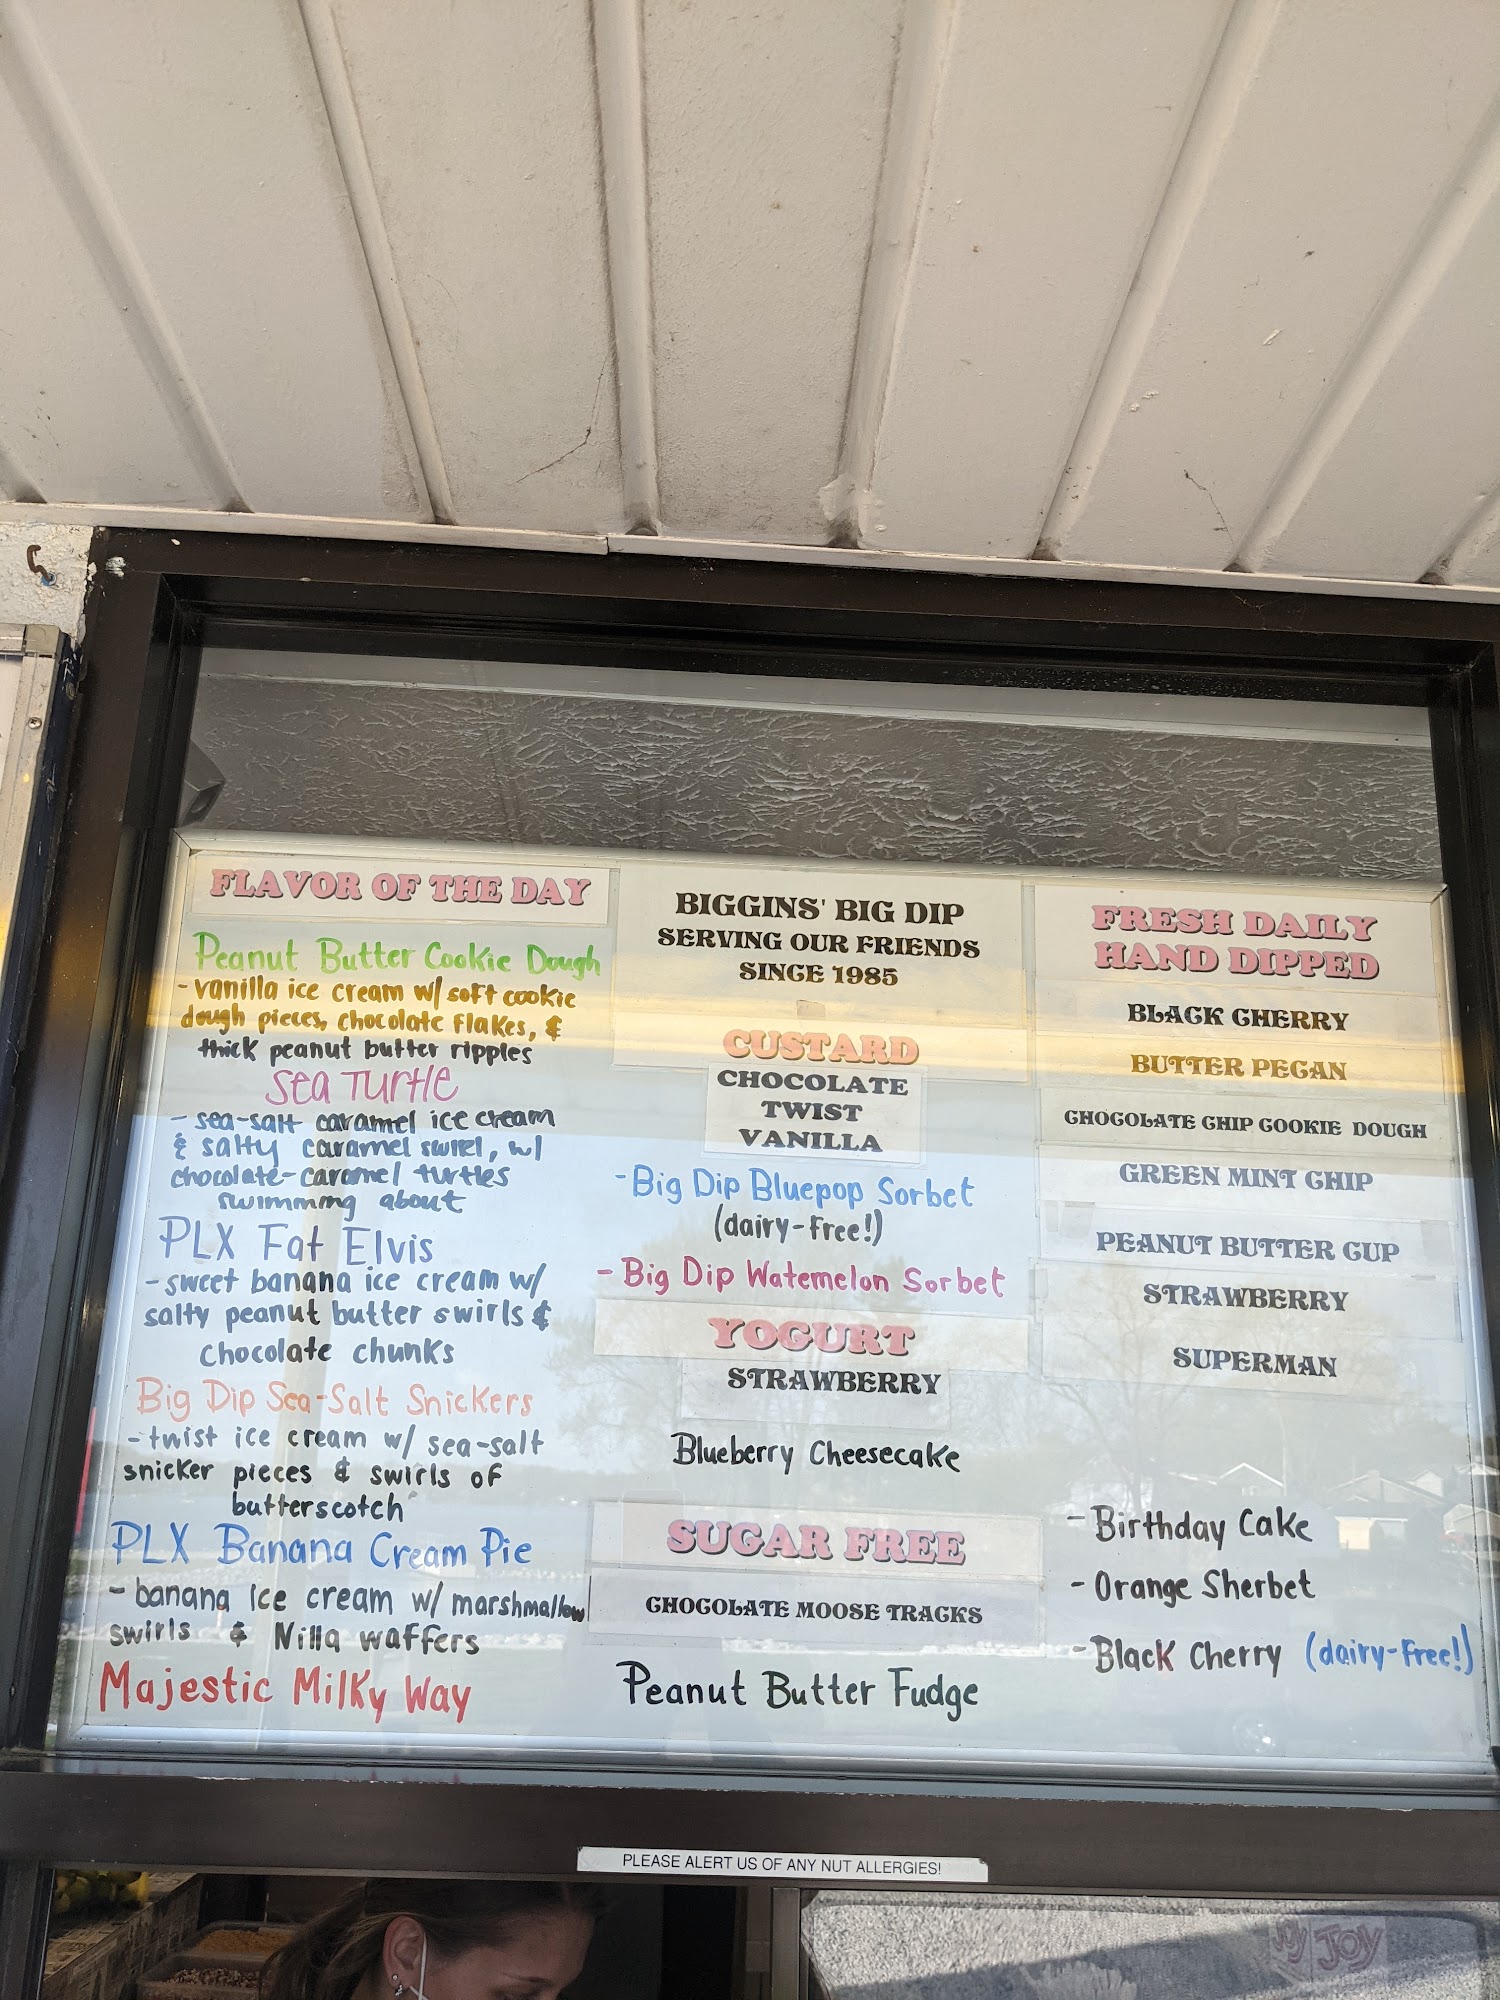 FLAVOR OF THE DAY
Peanut Butter Cookie Dough
- vanilla ice cream w/ soft cookie
dough pieces, chocolate flakes, &
thick peanut butter ripples
Sea Turtle
- sea-salt caramel ice cream
& salty caramel swirl, w/
chocolate-caramel turtles
swimming about
PLX Fat Elvis
- sweet banana ice cream w/
salty peanut butter swirls &
chocolate chunks
Big Dip Sea-Salt Snickers
- twist ice cream w/ sea-salt
snicker pieces & swirls of
butterscotch
PLX Banana Cream Pie
- banana ice cream w/ marshmallow
swirls & Nilla waffers
Majestic Milky Way
BIGGINS' BIG DIP
SERVING OUR FRIENDS
SINCE 1985
CUSTARD
CHOCOLATE
TWIST
VANILLA
- Big Dip Bluepop Sorbet
(dairy-free!)
- Big Dip Watemelon Sorbet
YOGURT
STRAWBERRY
Blueberry Cheesecake
SUGAR FREE
CHOCOLATE MOOSE TRACKS
Peanut Butter Fudge
FRESH DAILY
HAND DIPPED
BLACK CHERRY
BUTTER PECAN
CHOCOLATE CHIP COOKIE DOUGH
GREEN MINT CHIP
PEANUT BUTTER CUP
STRAWBERRY
SUPERMAN
- Birthday Cake
- Orange Sherbet
- Black Cherry (dairy-free!)
PLEASE ALERT US OF ANY NUT ALLERGIES!
JOY